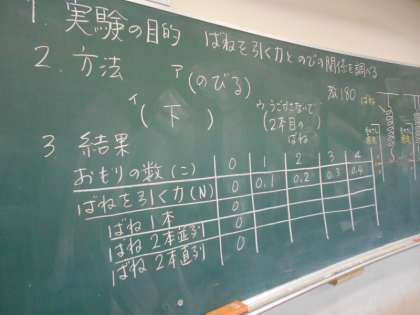 1. 実験の目的 ばねを引く力とのびの関係を調べる
2. 方法
ア(のびる)
教180
ばね
イ(下)
ウ、うごかさないで
(2本目の)
ばね
3 結果
おもりの数(こ) 0 1 2 3 4
ばねを引く力(N) 0 0.1 0.2 0.3 0.4
ばね1本 0
ばね2本並列 0
ばね2本直列 0